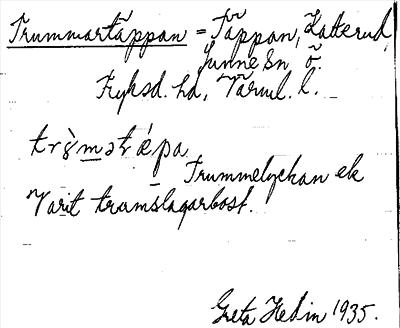 Trummartäppan = Täppan, Zakrud,
Gunnersn. ö.
Fryksd. hd, Värml. l.
trỳmətǽpa
Trummelyckan ek
Varit trumslagarbost.
Greta Hedin 1935.